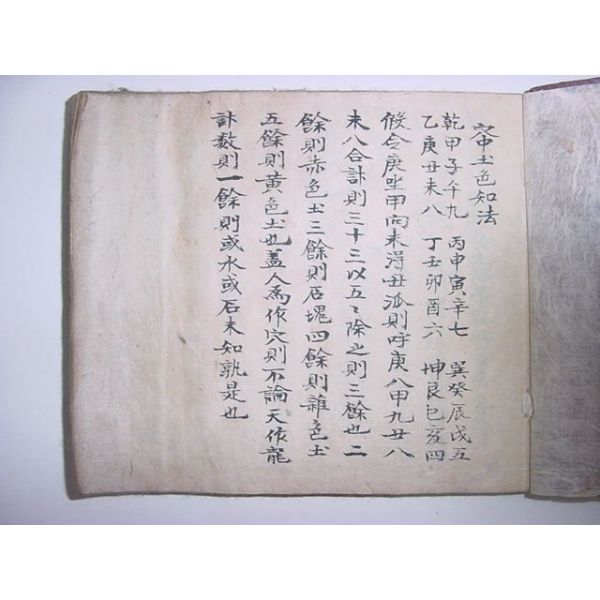 穴中土色知法
乾甲子午九 丙申寅辛七 巽癸辰戌五
乙庚丑未八 丁壬卯酉六 坤艮巳亥四
假令庚坐甲向未得丑派則呼庚八甲九丑八
未八合計則三十三以五〻除之則三餘也二
餘則赤色土三餘則石塊四餘則雜色土
五餘則黃色土也盖人爲作穴則不論天作龍
計数則一餘則或水或石未知孰是也